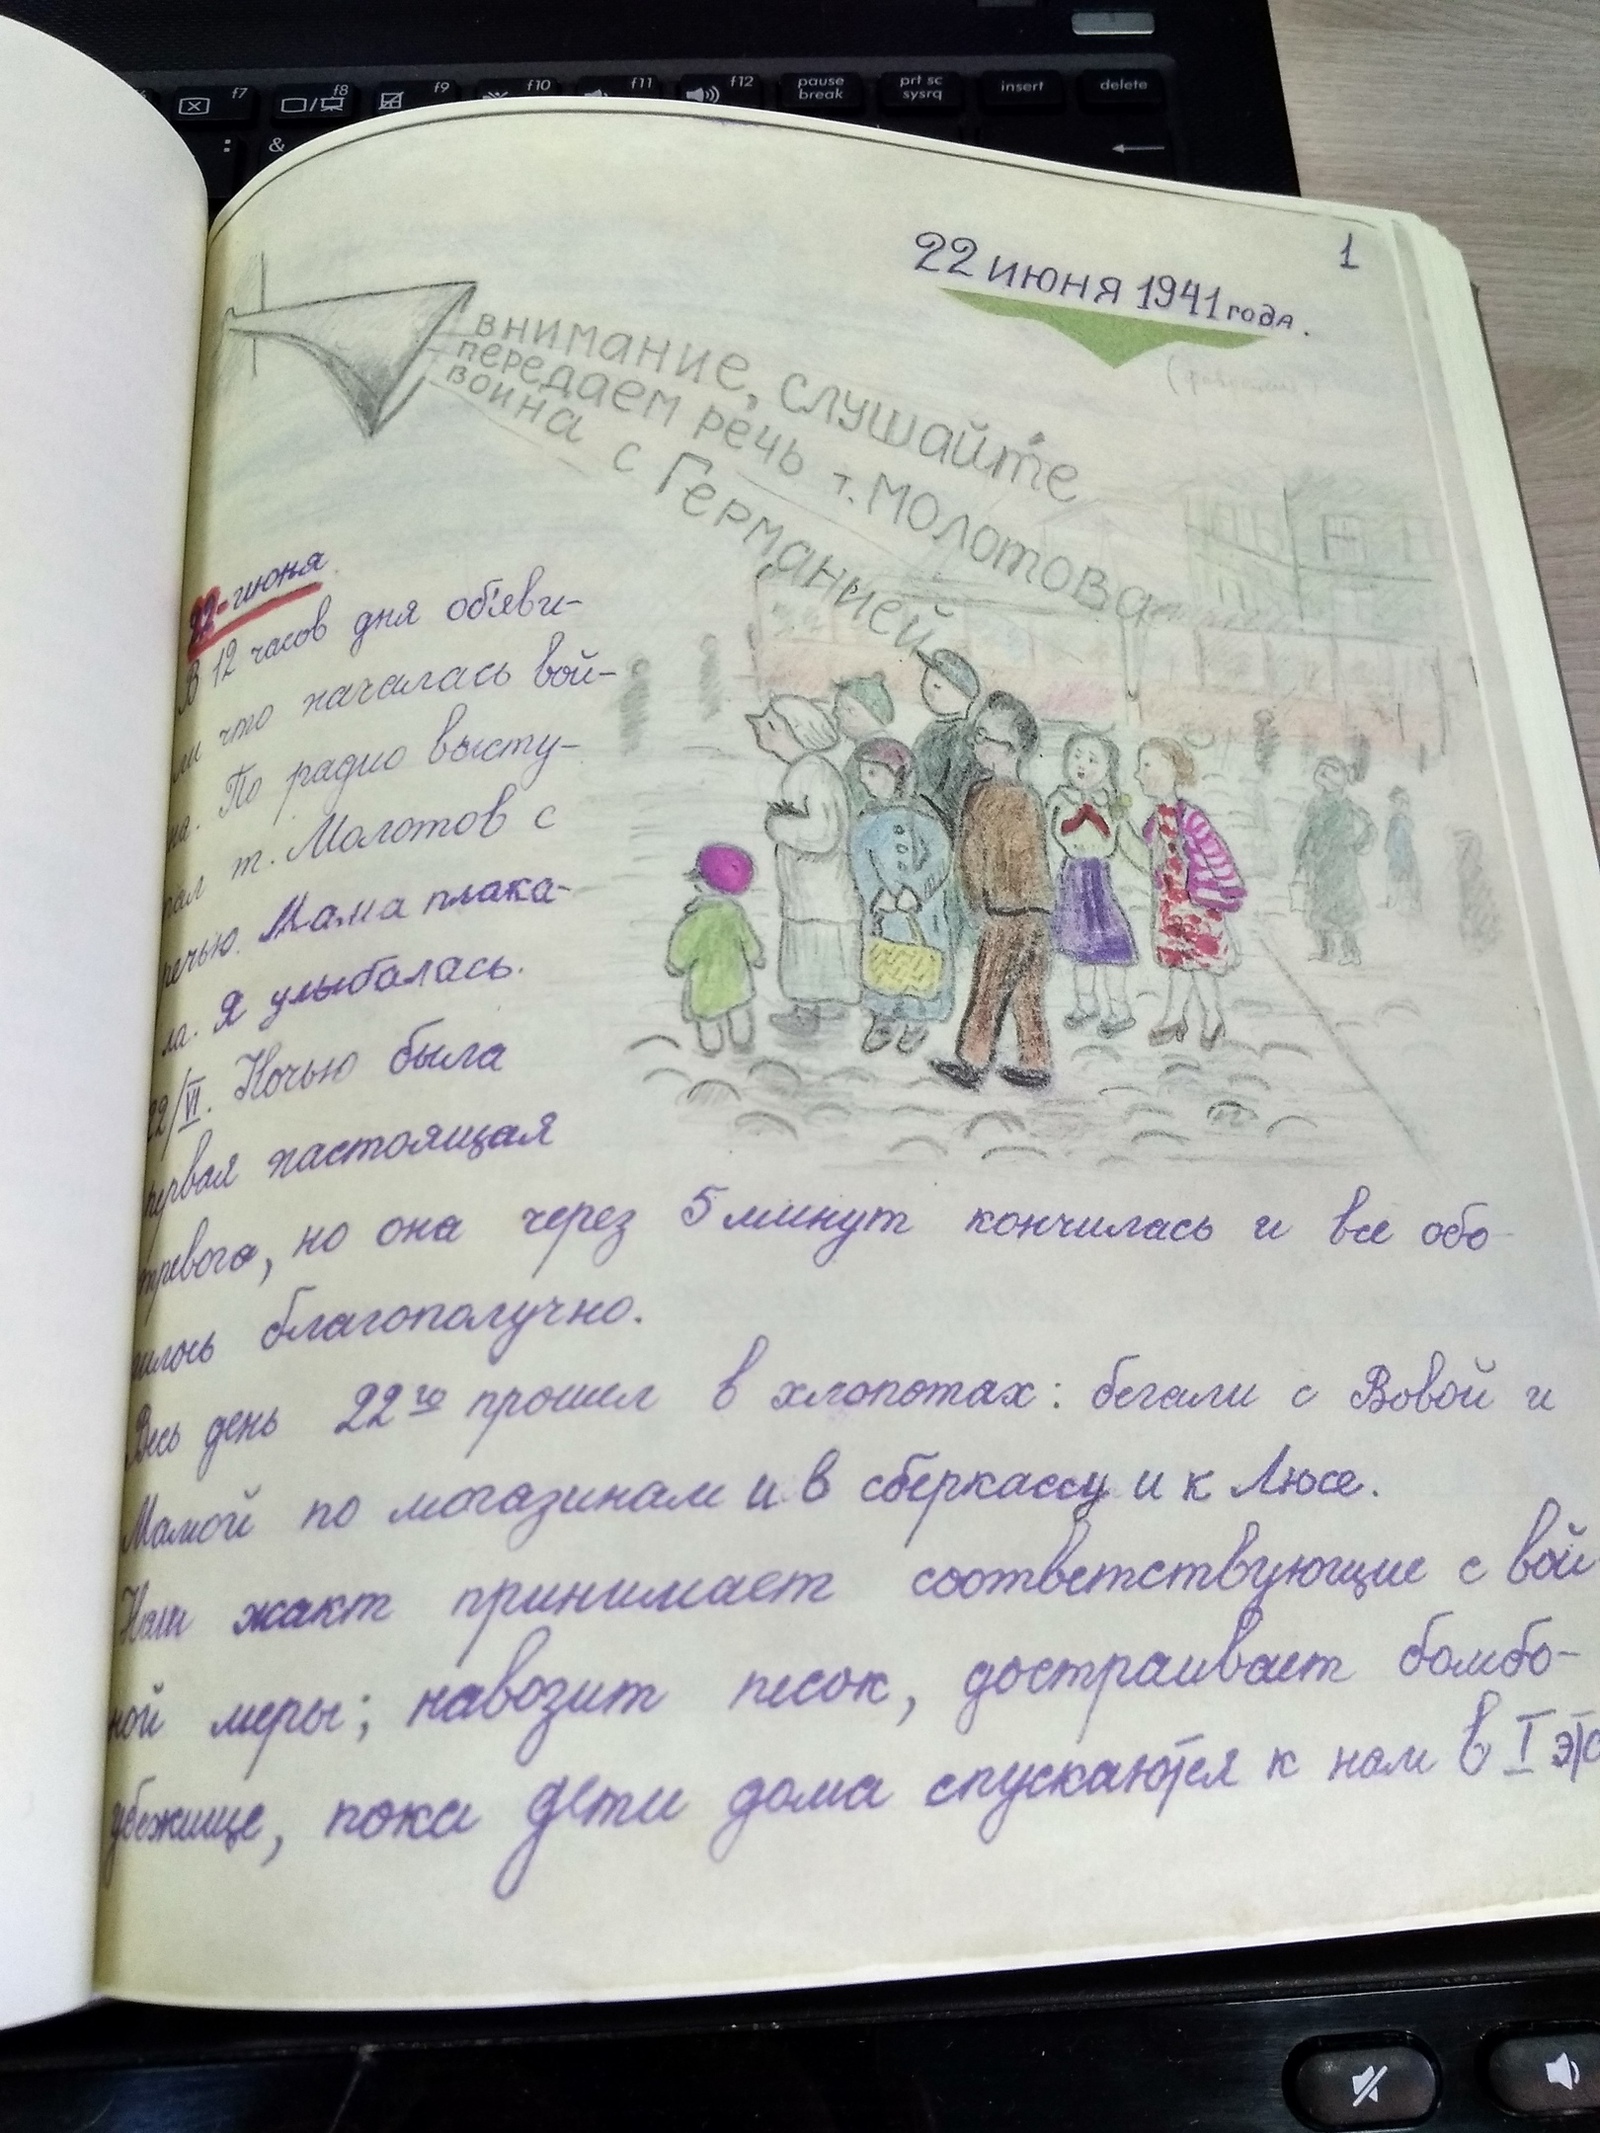 f7 f8 f9 f10 f11 f12 pause break prt sc sysrq insert delete
: &
1
22 июня 1941 года.
внимание, слушайте
передаем речь т. Молотова
война с Германией
22-июня
В 12 часов дня об'яви-
ли что началась вой-
на. По радио высту-
пал т. Молотов с
речью. Мама плака-
ла. Я улыбалась.
22/VI. Ночью была
первая настоящая
тревога, но она через 5 минут кончилась и все обо-
шлось благополучно.
Весь день 22го прошел в хлопотах: бегали с Вовой и
Мамой по магазинам и в сберкассу и к Люсе.
Наш жакт принимает соответствующие с вой
ной меры; навозит песок, достраивает бомбо-
убежище, пока дети дома спускаются к нам в I эта